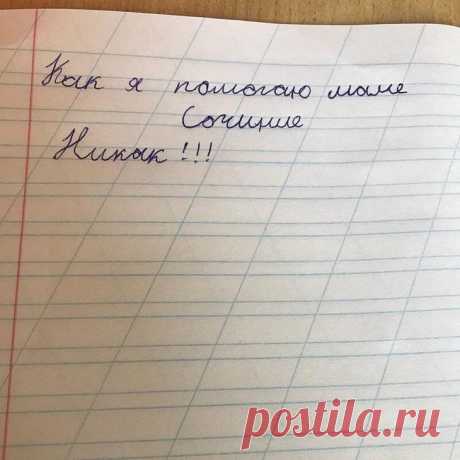 Как я помогаю маме
Сочиние
Никак!!!
postila.ru